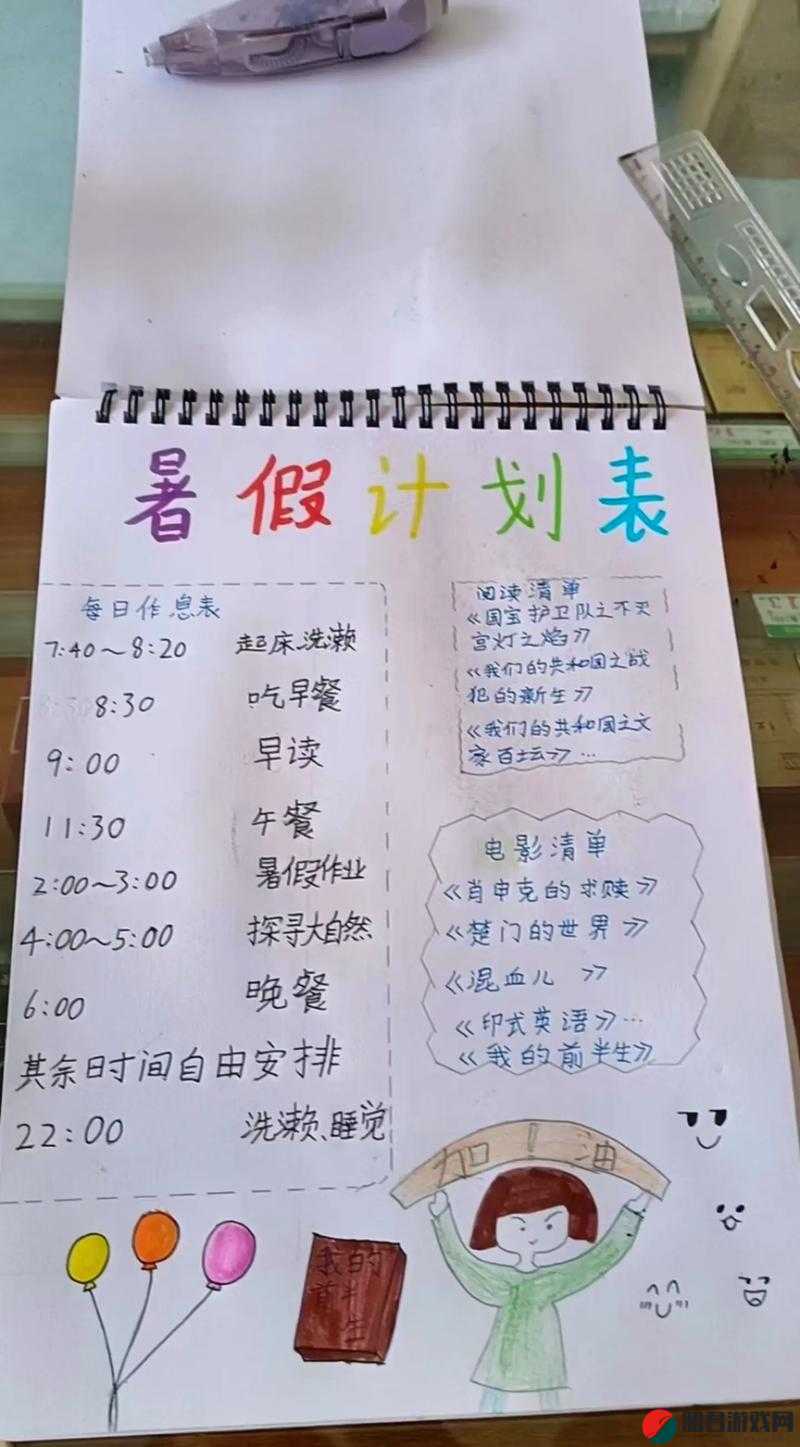 暑假计划表
每日作息表
7:40～8:20 起床、洗濑
8:30 吃早餐
9:00 早读
11:30 午餐
2:00～3:00 暑假作业
4:00～5:00 探寻大自然
6:00 晚餐
其余时间自由安排
22:00 洗濑、睡觉
阅读清单
《国宝护卫队之不灭
宫灯之焰》
《我们的共和国之战
犯的新生》
《我们的共和国之文
家百坛》…
电影清单
《肖申克的求赎》
《楚门的世界》
《混血儿》
《印式英语》…
《我的前半生》
加！油
我的
前半
生